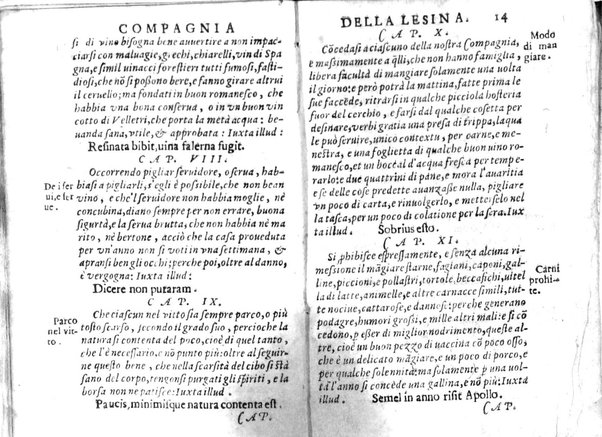 COMPAGNIA
si di vino bisogna bene auuertire a non impac-
ciarsi con maluagie, grechi, chiarelli, vin di Spa
gna, e simil uinacci forestieri tutti fumosi, fasti-
diosi, che nō si possono bere, e fanno girare altrui
il ceruello; ma fondati in buon romanesco, che
habbia vna bona conserua, o in vn buon vin
cotto di Velletri, che porta la metà acqua: be-
uanda sana, vtile, & approbata: Iuxta illud:
Resinata bibit, uina falerna fugit.
CAP. VIII.
De i ser
ui, e ser
ue.
Occorrendo pigliar seruidore, o serua, hab-
biasi a pigliarli, s'egli è possibile, che non bean
vino, e che'l seruidore non habbia moglie, nè
concubina, diano sempre per non errare, buona
sigurtà, e la serua brutta, che non habbia nè ma
rito, nè bertone, acciò che la casa proueduta
per vn'anno non si voti in vna settimana, &
apransi ben gli occhi; perche poi, oltre al danno,
è vergogna: Iuxta illud:
Dicere non putaram.
CAP. IX.
Parco
nel vit-
to.
Che ciascun nel vitto sia sempre parco, o più
tosto scarso, secondo il grado suo, percioche la
natura si contenta del poco, cioè di quel tanto,
che l'è necessario, e nō punto più: oltre al seguir-
ne questo bene, che nella scarsità del cibo si stà
sano del corpo, tengonsi purgati gli spiriti, e la
borsa non ne patisce: Iuxta illud.
Paucis, minimisque natura contenta est.
CAP.
DELLA LESINA. 14
CAP. X.
Modo
di man
giare.
Cōcedasi a ciascuno della nostra Compagnia,
e massimamente a q̃lli, che non hanno famiglia,
libera facultà di mangiare solamente una uolta
il giorno: e però potrà la mattina, fatte prima le
sue faccēde, ritrarsi in qualche picciola hosteria
fuor del cerchio, e farsi dar qualche cosetta per
desinare, verbi gratia una presa di trippa, laqua
le può seruire, unico contextu, per carne, e me-
nestra, e una foglietta di qualche buon uino ro-
manesco, et un boccal d'acqua fresca per temp e-
rarlo: e due quattrini di pane, e mora l'auaritia
e se delle cose predette auanzasse nulla, pigliare
vn poco di carta, e rinuolgerlo, e metterselo nel
la tasca, per un poco di colatione per la sera. Iux
ta illud.
Sobrius esto.
CAP. XI.
Carni
prohi-
te.
Si phibisce espressamente, e senza alcuna ri-
messione il māgiare starne, fagiani, caponi, gal-
line, piccioni, e pollastri, tortole, beccafichi, uitel
la di latte, animelle, e altre carnacce simili, tut-
te nociue, cattarose, e dannose: perche generano
podagre, humori grossi, e mille altri mali: e si cō
cedono, p esser di miglior nodrimento, queste al-
tre, cioè un buon pezzo di uaccina cō poco osso,
che è un delicato māgiare, e un poco di porco, e
per qualche uolta castrato: ma solamente p una uol
ta l'anno si concede una gallina, e nō più: Iuxta
illud.
Semel in anno risit Apollo.
CAP.